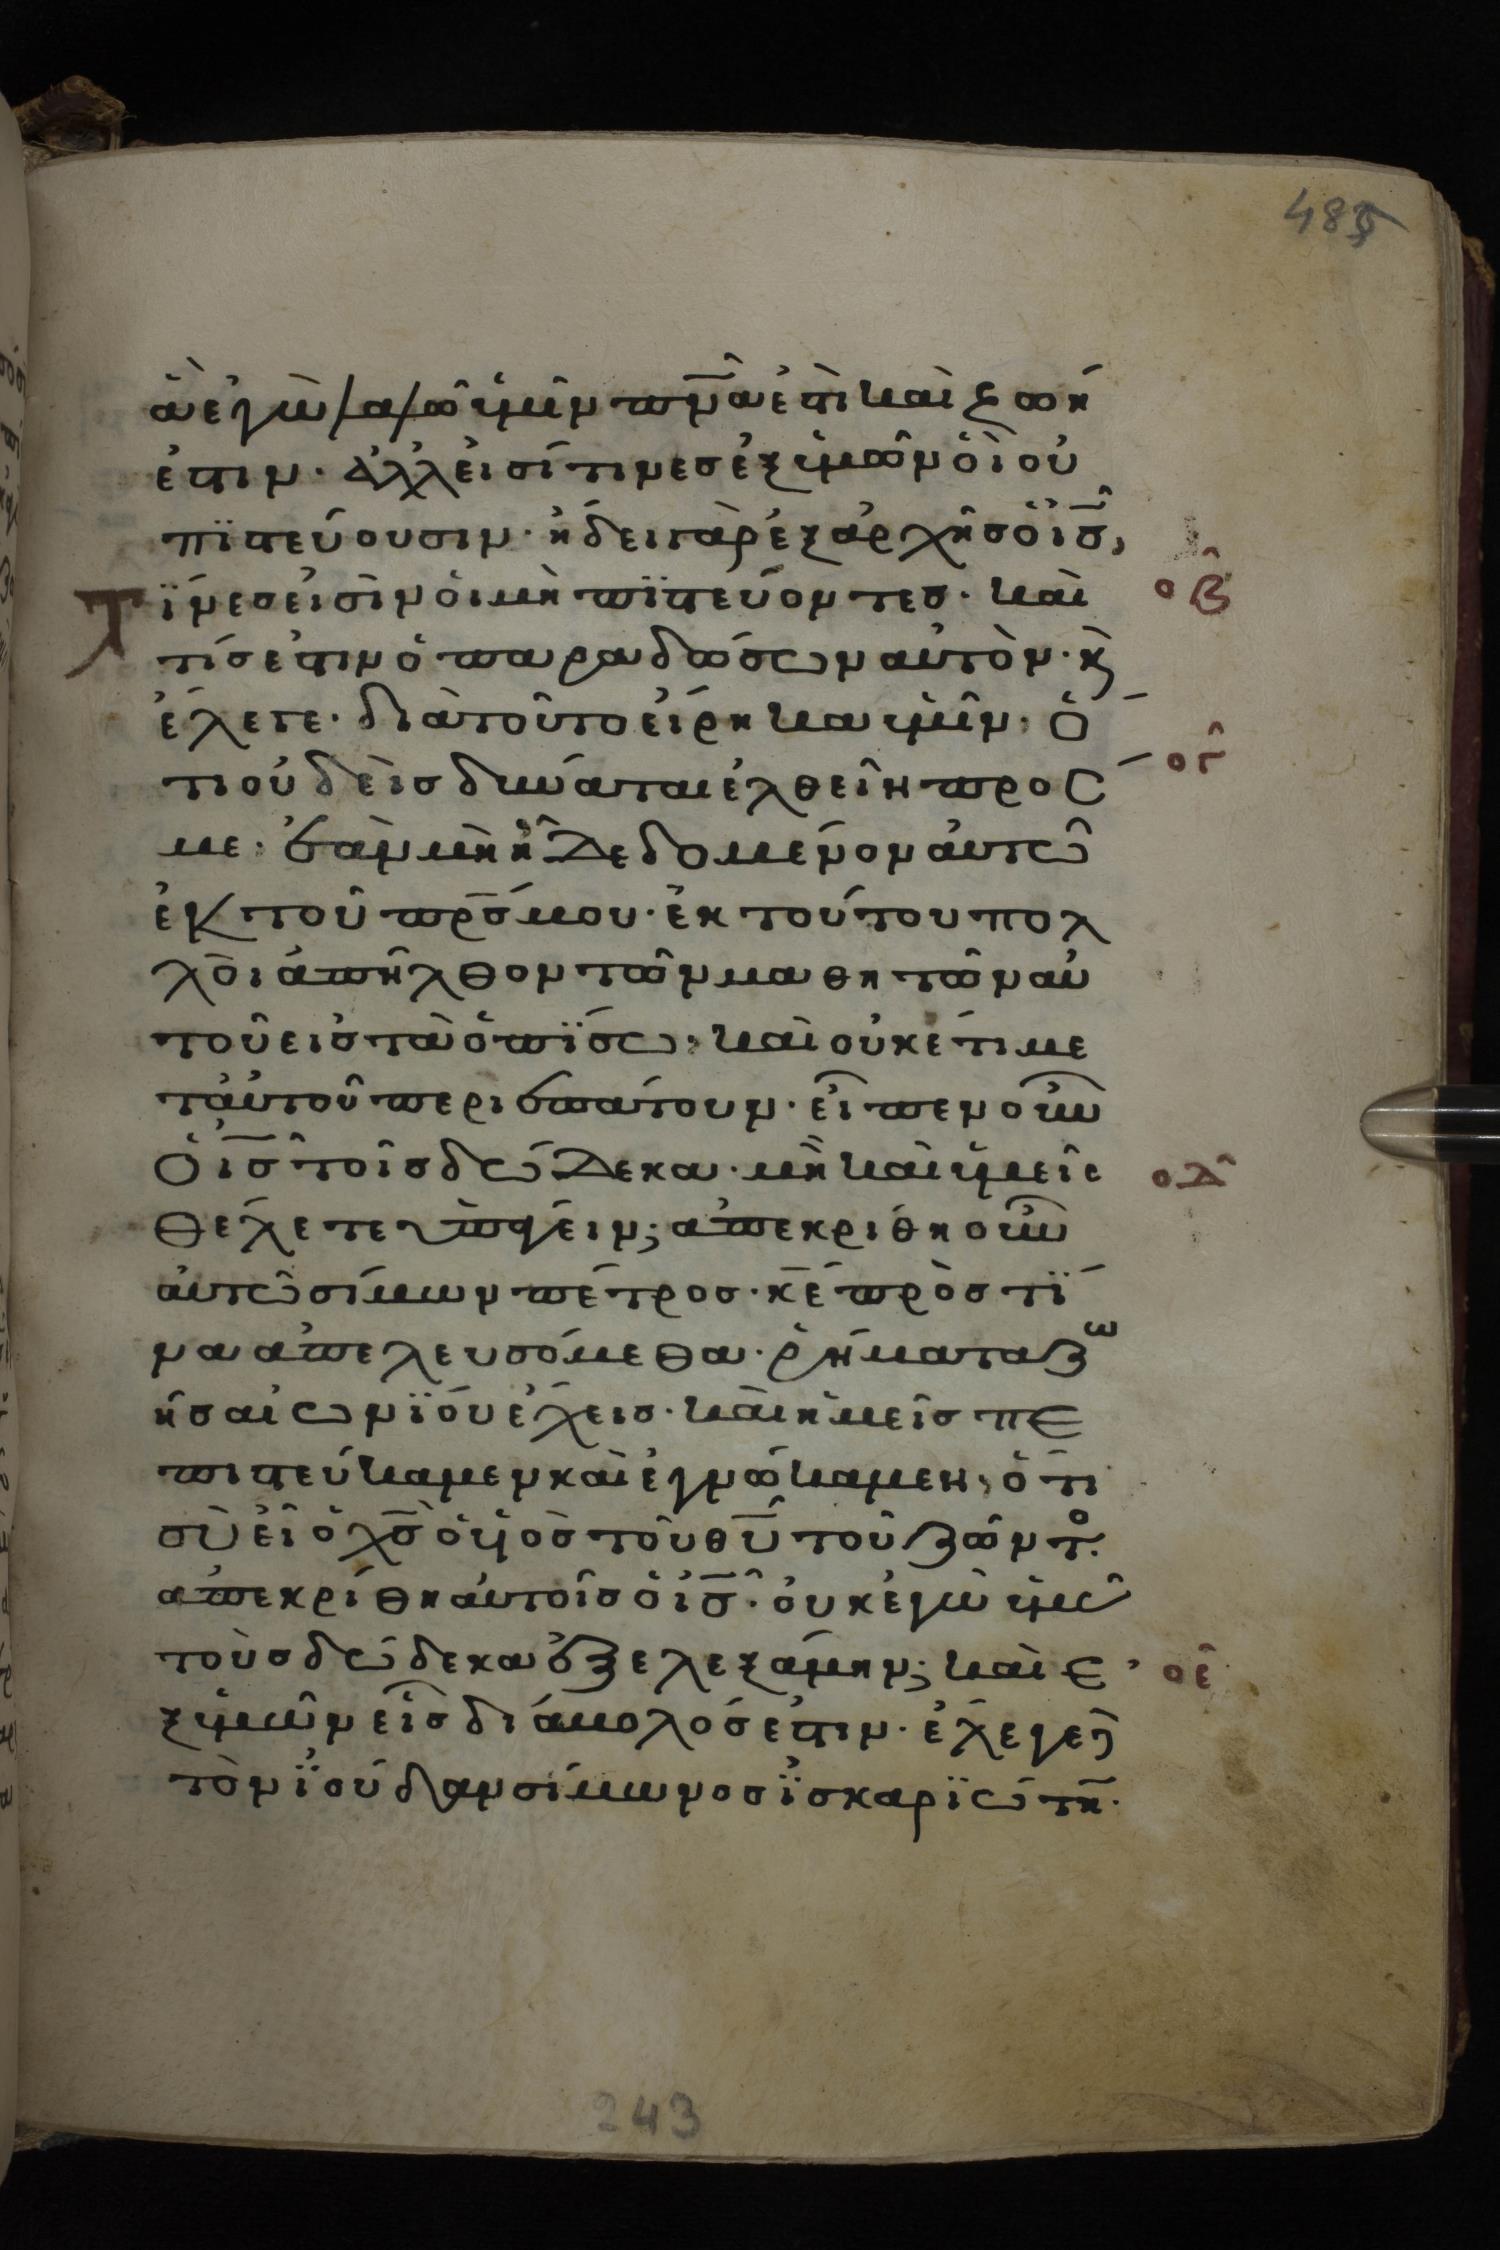 485
ἃ ἐγὼ λαλῶ ὑμῖν πν̅ᾶ ἐστι καὶ ζωή
ἐστιν· ἀλλ' εἰσί τινες ἐξ ὑμῶν οἳ οὐ
πϊστεύουσιν· ἤδει γὰρ ἐξ ἀρχῆς ὁ ι̅ς̅,
τϊνες εἰσὶν οἱ μὴ πϊστεύοντες· καὶ
οβ
τίς ἐστιν ὁ παραδώσων αὐτὸν· κὲ
ἔλεγε· διὰ τοῦτο εἴρηκα ὑμῖν· ὅ
τι οὐδεὶς δύναται ἐλθεῖν προς
ογ
με· ἐὰν μὴ ἦ δεδομένον αὐτῶ
ἐκ τοῦ πρ̅ς̅ μου· ἐκ τούτου πολ
λοὶ ἀπῆλθον τῶν μαθητῶν αὐ
τοῦ εἰς τὰ ὀπϊσω· καὶ οὐκέτι με
τ' αὐτοῦ περιεπάτουν· εἶπεν οὖν
ὁ ι̅ς̅ τοῖς δώδεκα· μὴ καὶ ὑμεῖς
οδ
θέλετε ὑπάγειν; ἀπεκρίθη οὖν
αὐτῶ σίμων πέτρος· κ̅ε̅ πρὸς τϊ
να ἀπελευσόμεθα· ῥήματα ζω
ῆς αἰωνϊου ἔχεις· καὶ ἡμεῖς πε
πιστεύκαμεν καὶ ἐγνώκαμεν, ὅτι
σὺ εἶ ὁ χ̅ς̅ ὁ υἱὸς τοῦ θ̅υ̅ τοῦ ζῶντο·
ἀπεκρίθη αὐτοῖς ὁ ι̅ς̅· οὐκ ἐγὼ ὑμᾶς
τοὺς δώδεκα ἐξελεξάμην; καὶ ἐ
οε
ξ ὑμῶν εἷς διάβολός ἐστιν· ἔλεγε δὲ
τὸν ϊούδαν σίμωνος ϊσκαρϊώτην·
243